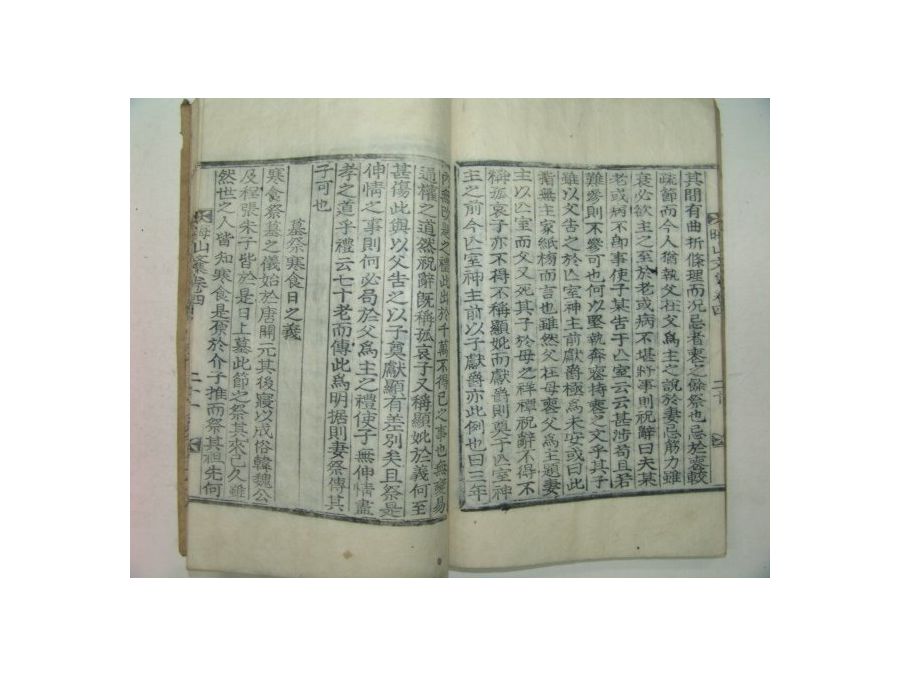 其間有曲折條理而况忌者喪之餘祭也忌於喪較
疏節而今人猶執父在父爲主之說於妻忌筋力雖
衰必欲主之至於老或病不堪將事則祝辭曰夫某
老或病不卽事使子某告于亡室云云甚涉苟且若
難參則不參可也何以堅執奔喪持喪之文乎其子
雖以父告之於亡室神主前獻爵極爲未安或曰此
指無主家紙榜而言也雖然父在母喪父爲主題妻
主以亡室而父又死其子於母之祥禫祝辭不得不
稱孤哀子亦不得不稱顯妣而獻爵則奠于亡室神
主之前今亡室神主前以子獻爵亦此例也曰三年
內無改題之禮此出於千萬不得已之事也無變易
通權之道然祝辭旣稱孤哀子又稱顯妣於義何至
甚傷此與以父告之以子奠獻顯有差別矣且祭是
伸情之事則何必局於父爲主之禮使子無伸情盡
孝之道乎禮云七十老而傳此爲明据則妻祭傳其
子可也
墓祭寒食日之義
寒食祭墓之儀始於唐開元其後寖以成俗韓魏公
及程張朱子皆於是日上墓此節之祭其來已久雖
然世之人皆知寒食是原於介子推而祭其祖先何
山文集卷四
二十一